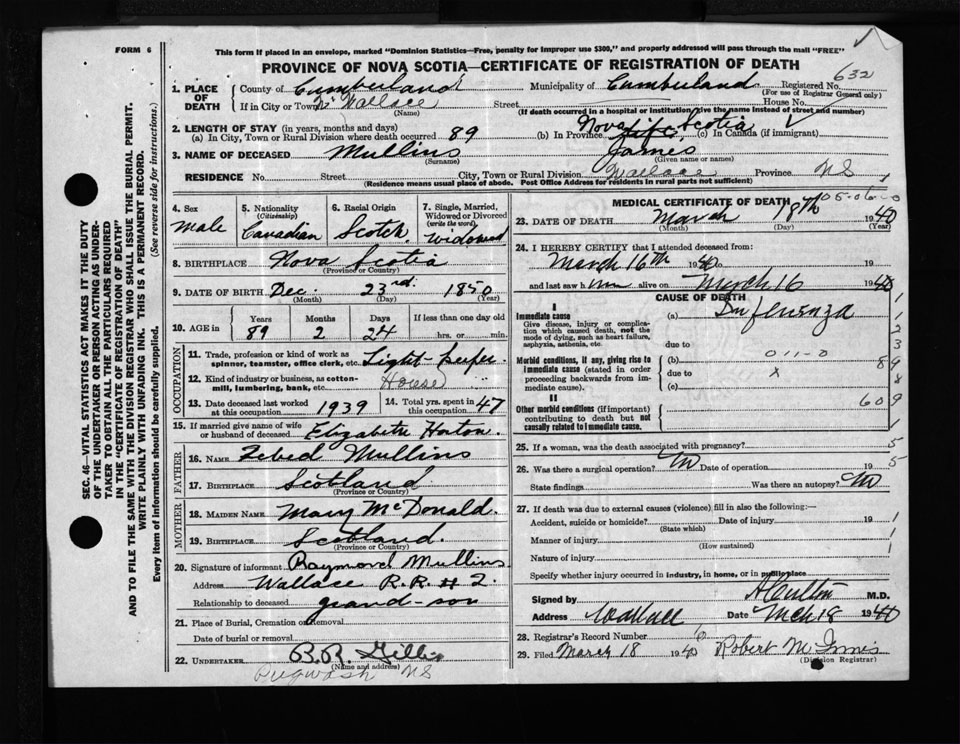 FORM 6
This form if placed in an envelope, marked "Dominion Statistics—Free, penalty for improper use $300," and properly addressed will pass through the mail "FREE"
PROVINCE OF NOVA SCOTIA—CERTIFICATE OF REGISTRATION OF DEATH
632
1. PLACE OF DEATH
County of Cumberland Municipality of Cumberland Registered No.
(For use of Registrar General only)
If in City or Town N. Wallace Street House No.
(Name) (If death occurred in a hospital or institution, give the name instead of street and number)
2. LENGTH OF STAY (in years, months and days)
Nova Scotia
(a) In City, Town or Rural Division where death occurred 89 (b) In Province life (c) In Canada (if immigrant)
3. NAME OF DECEASED Mullins James
(Surname) (Given name or names)
RESIDENCE No. Street City, Town or Rural Division Wallace Province NS
(Residence means usual place of abode. Post Office Address for residents in rural parts not sufficient)
SEC. 46—VITAL STATISTICS ACT MAKES IT THE DUTY
OF THE UNDERTAKER OR PERSON ACTING AS UNDER-
TAKER TO OBTAIN ALL THE PARTICULARS REQUIRED
IN THE "CERTIFICATE OF REGISTRATION OF DEATH"
AND TO FILE THE SAME WITH THE DIVISION REGISTRAR WHO SHALL ISSUE THE BURIAL PERMIT.
WRITE PLAINLY WITH UNFADING INK. THIS IS A PERMANENT RECORD.
Every item of information should be carefully supplied. (See reverse side for instructions.)
4. Sex
Male
5. Nationality
(Citizenship)
Canadian
6. Racial Origin
Scotch
7. Single, Married, Widowed or Divorced
(write the word)
Widowed
8. BIRTHPLACE Nova Scotia
(Province or Country)
9. DATE OF BIRTH Dec. 23rd. 1850
(Month) (Day) (Year)
10. AGE in Years Months Days If less than one day old
89 2 24 hrs. or min.
OCCUPATION
11. Trade, profession or kind of work as spinner, teamster, office clerk, etc. Light-keeper.
12. Kind of industry or business, as cotton-mill, lumbering, bank, etc. House
13. Date deceased last worked at this occupation 1939
14. Total yrs. spent in this occupation 47
15. If married give name of wife or husband of deceased Elizabeth Horton.
FATHER
16. NAME Zebed Mullins
17. BIRTHPLACE Scotland
(Province or Country)
MOTHER
18. MAIDEN NAME Mary McDonald.
19. BIRTHPLACE Scotland.
(Province or Country)
20. Signature of informant Raymond Mullins
Address Wallace R.R. # 2.
Relationship to deceased grand-son
21. Place of Burial, Cremation or Removal
Date of burial or removal
22. UNDERTAKER B.R. Gillis
(Name and address)
Pugwash NS
MEDICAL CERTIFICATE OF DEATH
05-06-0
23. DATE OF DEATH March 18th 1940
(Month) (Day) (Year)
24. I HEREBY CERTIFY that I attended deceased from:
March 16th 1940 to 19
and last saw him alive on March 16 1940
CAUSE OF DEATH
I
Immediate cause
Give disease, injury or complication which caused death, not the mode of dying, such as heart failure, asphyxia, asthenia, etc.
(a) Influenza
due to
Morbid conditions, if any, giving rise to immediate cause (stated in order proceeding backwards from immediate cause).
(b) 011-0
due to x
(c)
II
Other morbid conditions (if important) contributing to death but not causally related to immediate cause.
609
25. If a woman, was the death associated with pregnancy?
26. Was there a surgical operation? No Date of operation 19
State findings Was there an autopsy? No
27. If death was due to external causes (violence) fill in also the following:—
Accident, suicide or homicide? Date of injury 19
(State which)
Manner of injury
(How sustained)
Nature of injury
Specify whether injury occurred in industry, in home, or in public place
Signed by M.D.
Address Wallace Date Mch 18 1940
28. Registrar's Record Number 6
29. Filed March 18 1940 Robert McInnis
(Division Registrar)